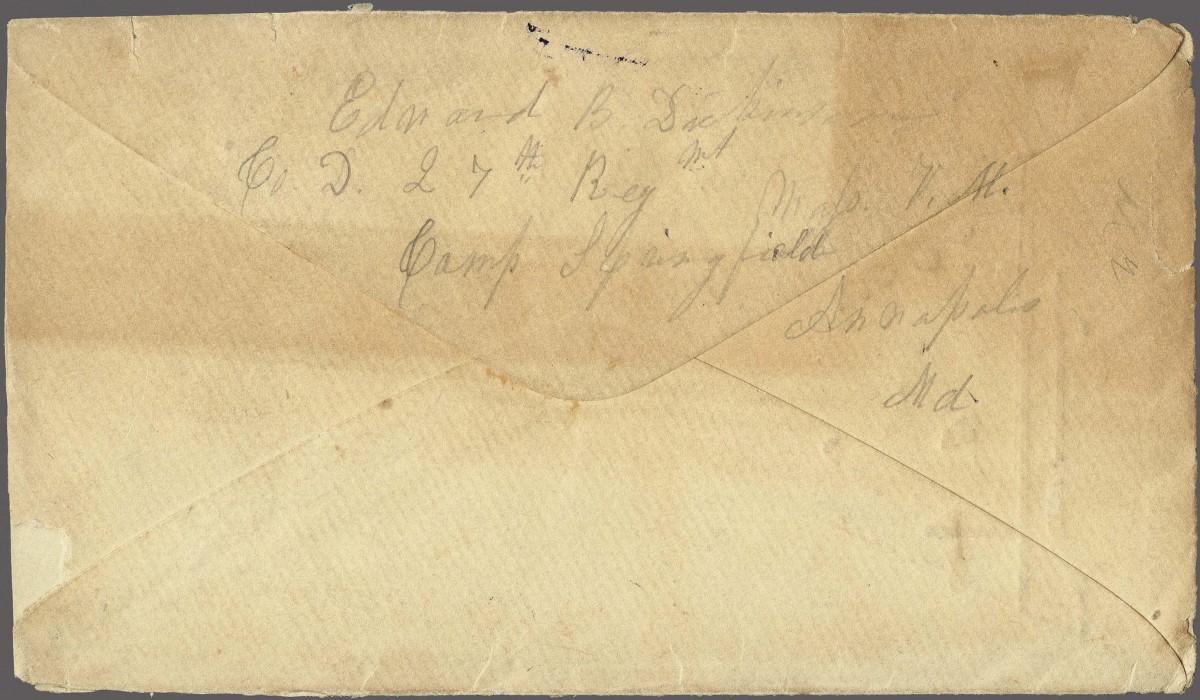 Edward B. Dickinson
Co. D. 27th Regmt Mass. V. M.
Camp Springfield
Annapolis
Md.